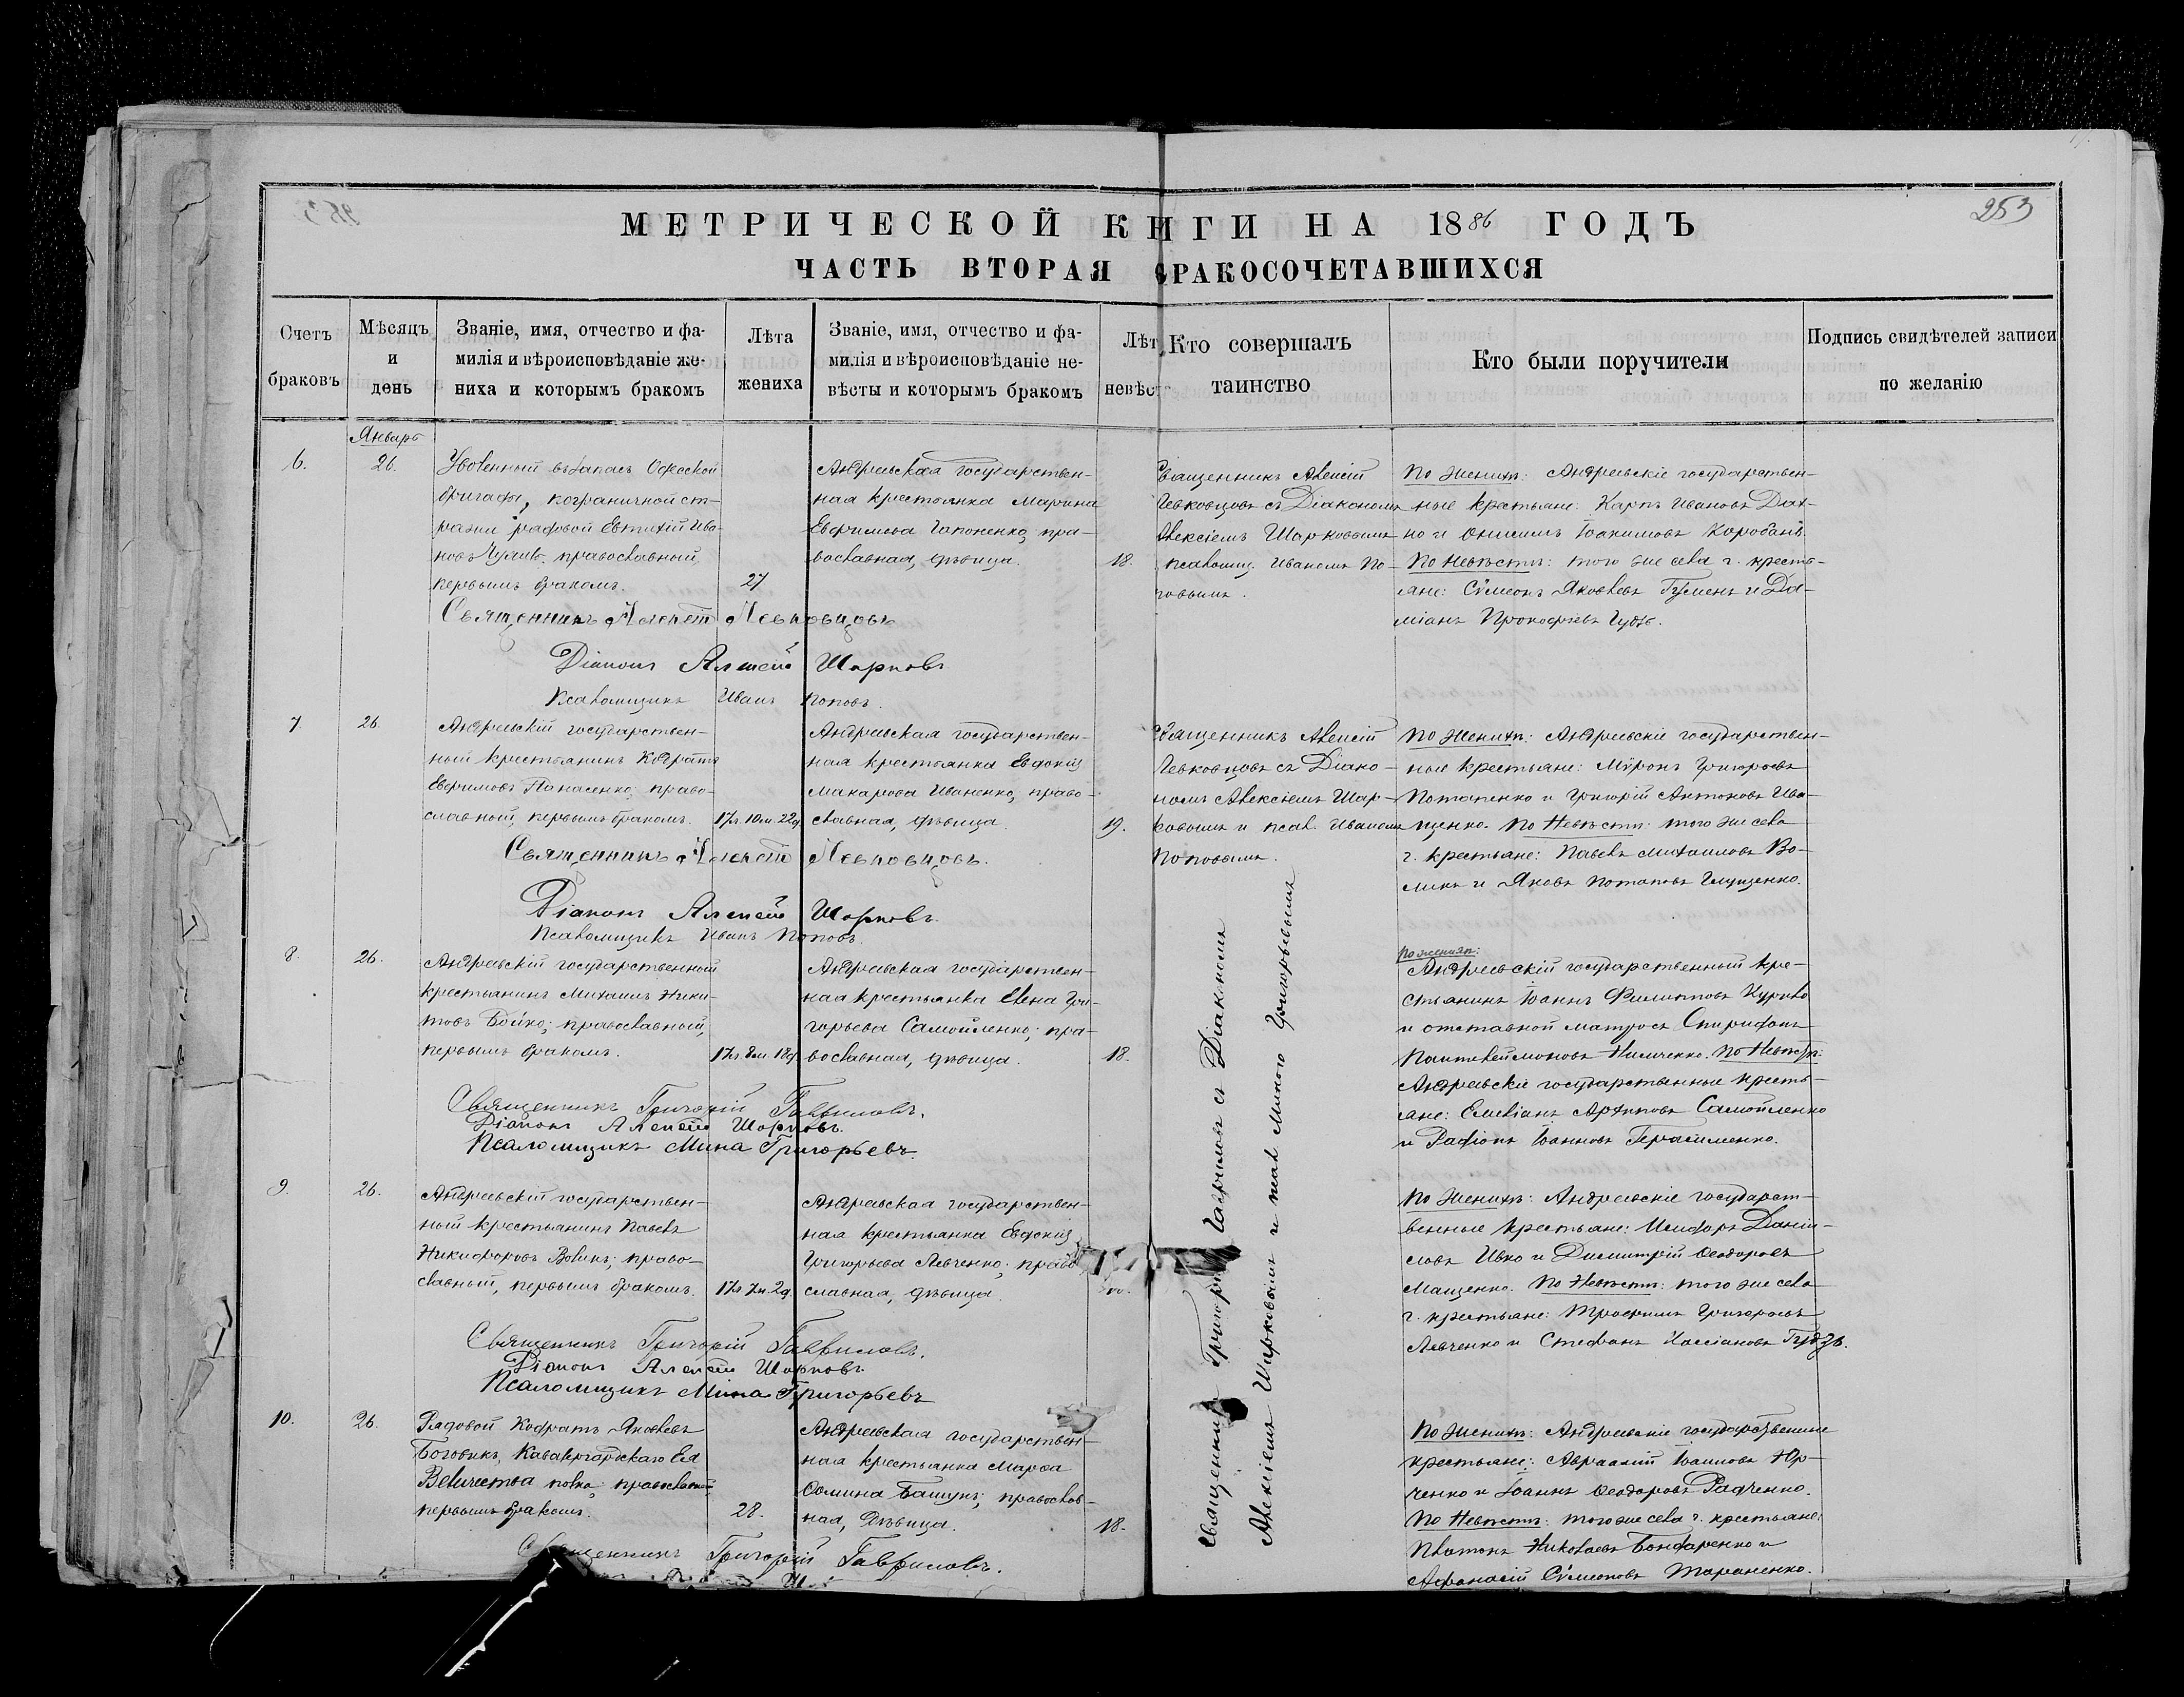 253
МЕТРИЧЕСКОЙ КНИГИ НА 1886 ГОДЪ
ЧАСТЬ ВТОРАЯ БРАКОСОЧЕТАВШИХСЯ
Счетъ
браковъ
Мѣсяцъ
и
день
Званіе, имя, отчество и фа-
милія и вѣроисповѣданіе же-
ниха и которымъ бракомъ
Лѣта
жениха
Званіе, имя, отчество и фа-
милія и вѣроисповѣданіе не-
вѣсты и которымъ бракомъ
Лѣт
невѣст
Кто совершалъ
таинство
Кто были поручители
Подпись свидѣтелей записи
по желанію
Январь
6.
26.
Уволенный въ запасъ Одесской
бригады, пограничной ст-
ражи рядовой Евтихій Ива-
новъ православный,
первымъ бракомъ.
27
Андреевская государствен-
ная крестьянка Марина
Евфимова Гапоненко, пра-
вославная, дѣвица.
18.
Священникъ Алексій
Левковцовъ съ Діакономъ
Алексіемъ Шарковымъ
псаломщ. Иваномъ По-
повымъ.
По женихѣ: Андреевскіе государствен-
ные крестьяне: Карпъ Ивановъ Дах-
но и Онисимъ Іоакимовъ Коробань.
По невѣстѣ: того же села г. кресть-
яне: Сѵмеонъ Яковлевъ Гуменъ и Да-
міанъ Прокофіевъ
Священникъ Алексій Левковцовъ
Діаконъ Алексей Шарковъ
Псаломщикъ Иванъ Поповъ.
7.
26.
Андреевскій государствен-
ный крестьянинъ Кодратъ
Евфимовъ Панасенко, право-
славный, первымъ бракомъ.
17л. 10м. 22д.
Андреевская государствен-
ная крестьянка Евдокія
Макарова Иваненко, право-
славная, дѣвица.
19.
Священникъ Алексій
Левковцовъ съ Діако-
номъ Алексіемъ Шар-
ковымъ и псал. Иваномъ
Поповымъ.
По женихѣ: Андреевскіе государствен-
ные крестьяне: Мѵронъ Григорьевъ
Потапенко и Григорій Антоновъ Ива-
щенко. По невѣстѣ: того же села
г. крестьяне: Павелъ Михаиловъ Во-
ликъ и Яковъ Потаповъ Глущенко.
Священникъ Алексій Левковцовъ.
Діаконъ Алексей Шарковъ
Псаломщикъ Иванъ Поповъ.
8.
26.
Андреевскій государственный
крестьянинъ Михаилъ Ники-
товъ Бойко; православный,
первымъ бракомъ.
17л. 8м. 18д.
Андреевская государствен-
ная крестьянка Елена Гри-
горьева Самойленко; пра-
вославная, дѣвица.
18.
По женихѣ:
Андреевскій государственный кре-
стьянинъ Іоаннъ Филиповъ
и отставной матросъ Спиридонъ
Пантелеймоновъ Нимченко. По невѣстѣ:
Андреевскіе государственные кресть-
яне: Емиліанъ Архиповъ Самойленко
и Родіонъ Іоанновъ Герасименко.
Священникъ Григорій Гавриловъ.
Діаконъ Алексей Шарковъ.
Псаломщикъ Мина Григорьевъ.
Священникъ Григорій Гавриловъ съ Діакономъ
Алексіемъ Шарковымъ и псал. Миною Григорьевымъ
9.
26.
Андреевскій государствен-
ный крестьянинъ Павелъ
Никифоровъ Воликъ; право-
славный, первымъ бракомъ.
17л. 7м. 2д.
Андреевская государствен-
ная крестьянка Евдокія
Григорьева Левченко; право
славная, дѣвица.
По женихѣ: Андреевскіе государст-
венные крестьяне: Исидоръ Даніи-
ловъ Ивко и Димитрій Ѳеодоровъ
Мащенко. По невѣстѣ: того же села
г. крестьяне: Трофимъ Григорьевъ
Левченко и Стефанъ Кассіановъ Гудзь.
Священникъ Григорій Гавриловъ.
Діаконъ Алексей Шарковъ.
Псаломщикъ Мина Григорьевъ
10.
26.
Рядовой Кодратъ Яковлевъ
Боговикъ, Кавалергардскаго Ея
Величества полка; православный
первымъ бракомъ.
28.
Андреевская государствен-
ная крестьянка Марѳа
Ѳомина Башукъ; православ-
ная, дѣвица.
18.
По женихѣ: Андреевскіе государственные
крестьяне: Авраамій Іоанновъ Юр-
ченко и Іоаннъ Ѳеодоровъ Радченко.
По невѣстѣ: того же села г. крестьяне:
Платонъ Николаевъ Бондаренко и
Афанасій Сѵмеоновъ Тараненко.
Священникъ Григорій Гавриловъ.